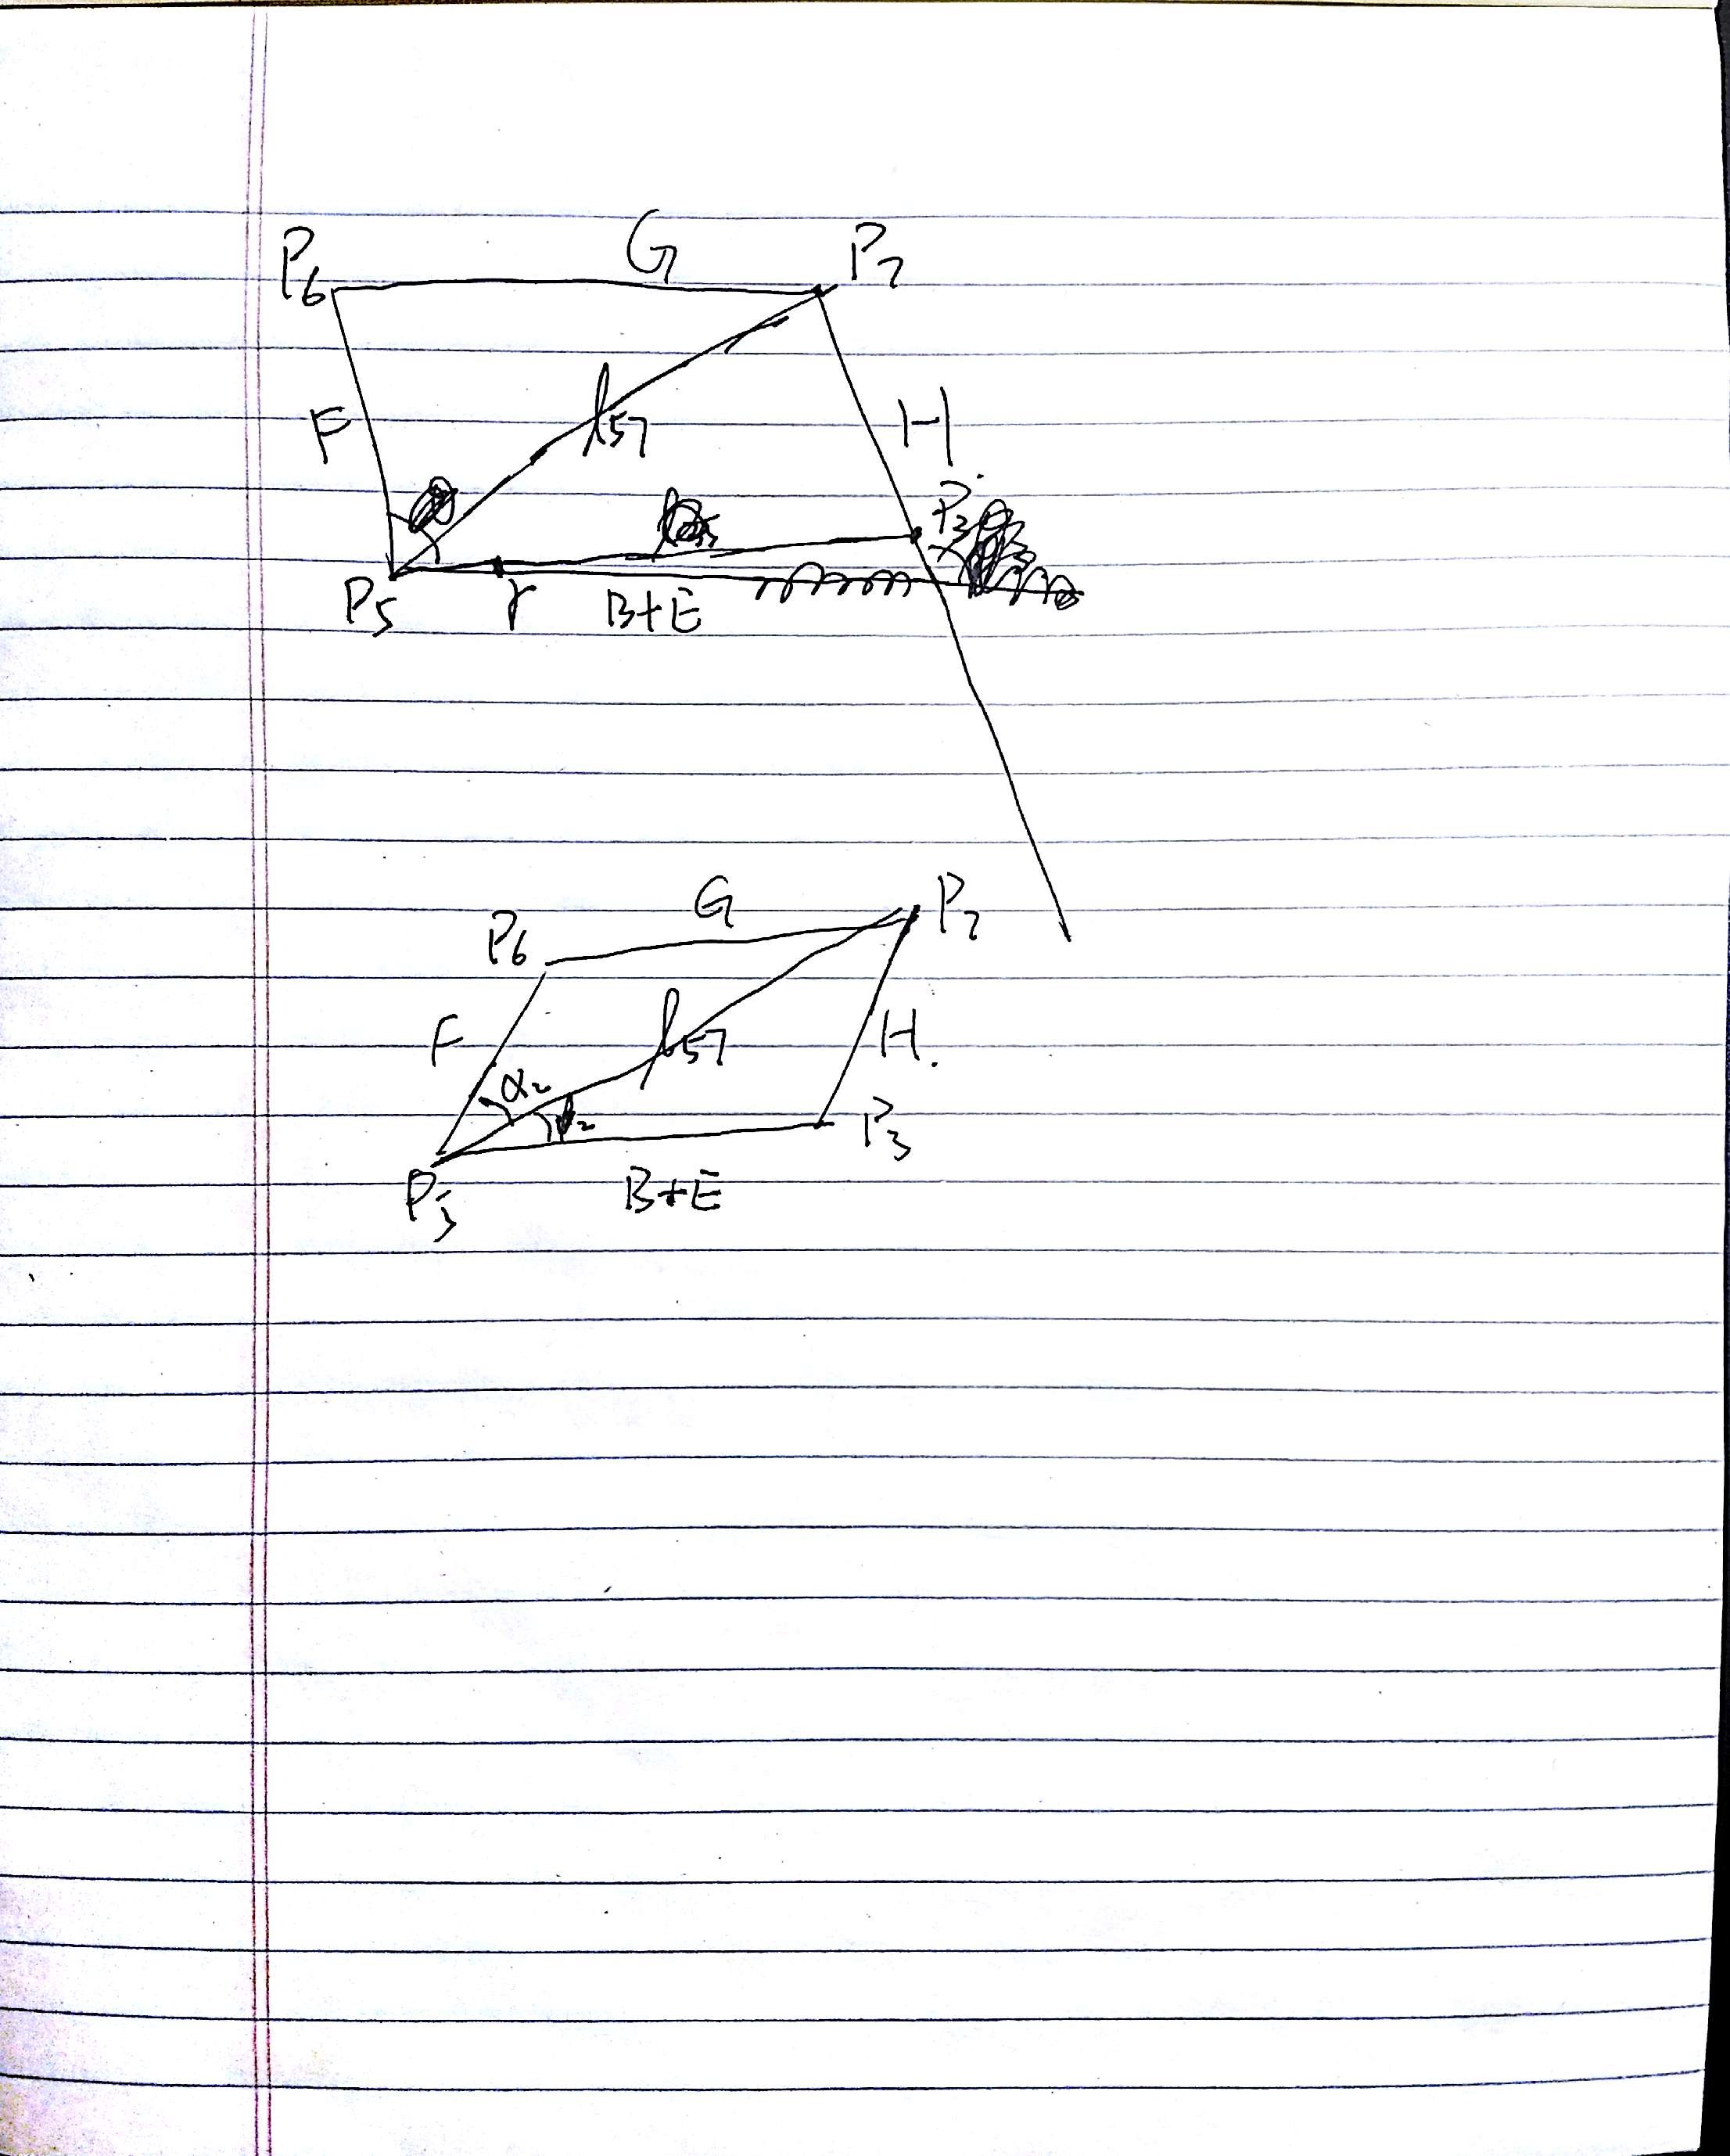 P6 G P7
F l57 H
P3
P5 γ B+E
P6 G P7
F l57 H.
α2
P3
P5 B+E